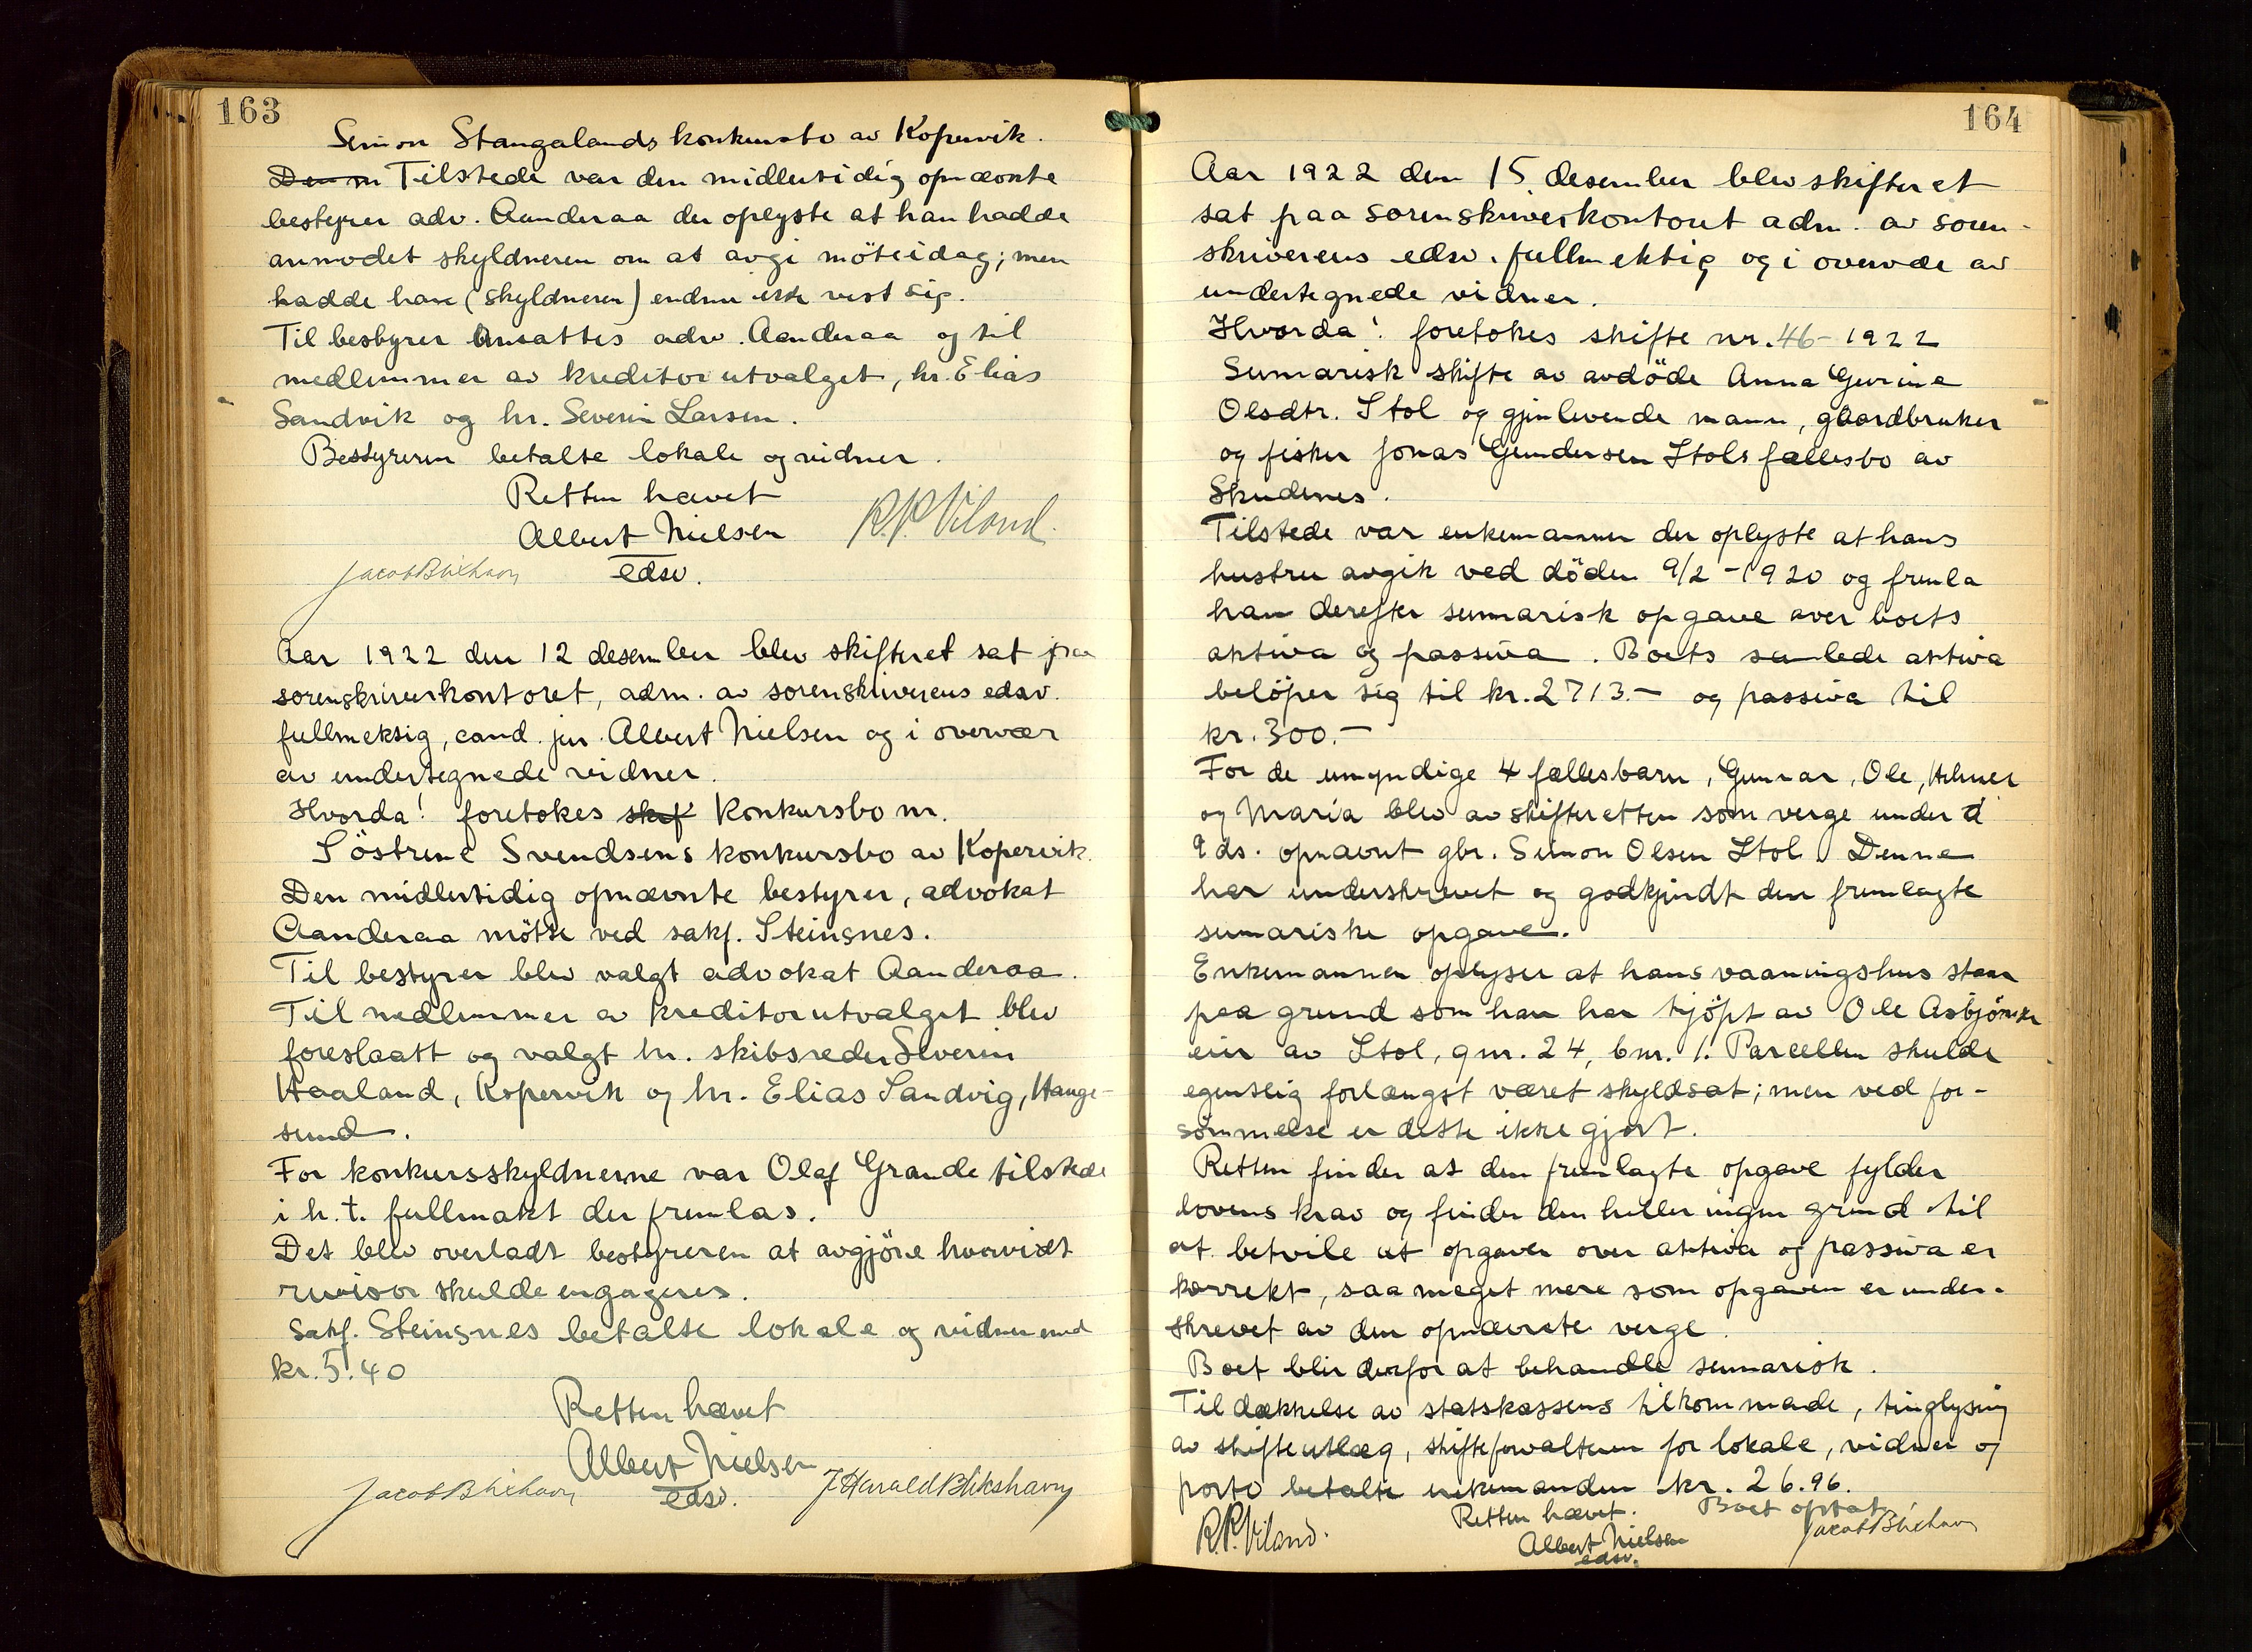 163
Simon Stangalands konkursbo av Kopervik.
Den m Tilstede var den midlertidig opnævnte
bestyrer adv. Aanderaa der oplyste at han hadde
anmodet skyldneren om at avgi möte idag; men
hadde han (skyldneren) endnu ikke vist sig.
Til bestyrer ansattes adv. Aanderaa og til
medlemmer av kreditorutvalget, hr. Elias
Sandvik og hr. Severin Larsen.
Bestyreren betalte lokale og vidner.
Retten hævet
Albert Nielsen R.P. Viland.
Jacob Blikhavn edsv.
Aar 1922 den 12 desember blev skifteret sat paa
sorenskriverkontoret, adm. av sorenskriverens edsv.
fullmektig, cand. jur. Albert Nielsen og i overvær
av undertegnede vidner.
Hvorda! foretokes skif konkursbo nr.
Söstrene Svendsens konkursbo av Kopervik.
Den midlertidig opnævnte bestyrer, advokat
Aanderaa mötte ved sakf. Steinsnes.
Til bestyrer blev valgt advokat Aanderaa.
Til medlemmer av kreditorutvalget blev
foreslaatt og valgt hr. skibsreder Severin
Haaland, Kopervik og hr. Elias Sandvig, Hauge-
sund.
For konkursskyldnerne var Olaf Grande tilstede
i h. t. fullmakt der fremlas.
Det blev overladt bestyreren at avgjöre hvorvidt
revisor skulde engageres.
Sakf. Steinsnes betalte lokale og vidner med
kr. 5.40
Retten hævet
Albert Nielsen
Jacob Blikhavn edsv. J. Harald Blikshavn
164
Aar 1922 den 15. desember blev skifteret
sat paa sorenskriverkontoret adm. av soren-
skriverens edsv. fullmektig og i overvære av
undertegnede vidner.
Hvorda! foretokes skifte nr. 46 - 1922
Sumarisk skifte av avdöde Anna Gurine
Olsdtr. Stol og gjenlevende mann, gaardbruker
og fisker Jonas Gundersen Stols fællesbo av
Skudenes.
Tilstede var enkemannen der oplyste at hans
hustru avgik ved döden 9/2 - 1920 og fremla
han derefter summarisk opgave over boets
aktiva og passiva. Boets samlede aktiva
belöper sig til kr. 2713.- og passiva til
kr. 300.-
For de umyndige 4 fællesbarn, Gunnar, Ole, Helmer
og Maria blev av skifteretten som verge under d
9 ds. opnævnt gbr. Simon Olsen Stol. Denne
har underskrevet og godkjendt den fremlagte
sumariske opgave.
Enkemannen oplyser at hans vaaningshus staar
paa grund som han har kjöpt av Ole Asbjörnsen
eier av Stol, gnr. 24, bnr. 1. Parcellen skulde
egentlig forlængst været skyldsat; men ved for-
sömmelse er dette ikke gjort.
Retten finder at den fremlagte opgave fylder
lovens krav og finder den heller ingen grund til
at betvile at opgaven over aktiva og passiva er
korrekt, saa meget mere som opgaven er under-
skrevet av den opnævnte verge.
Boet blir derfor at behandle sumarisk.
Til dækkelse av statskassens tilkommade, tinglysing
av skifteutlæg, skifteforvalteren for lokale, vidner og
porto betalte enkemanden kr. 26.96.
Retten hævet. Boet optat
R.P. Viland. Albert Nielsen Jacob Blikhavn
edsv.